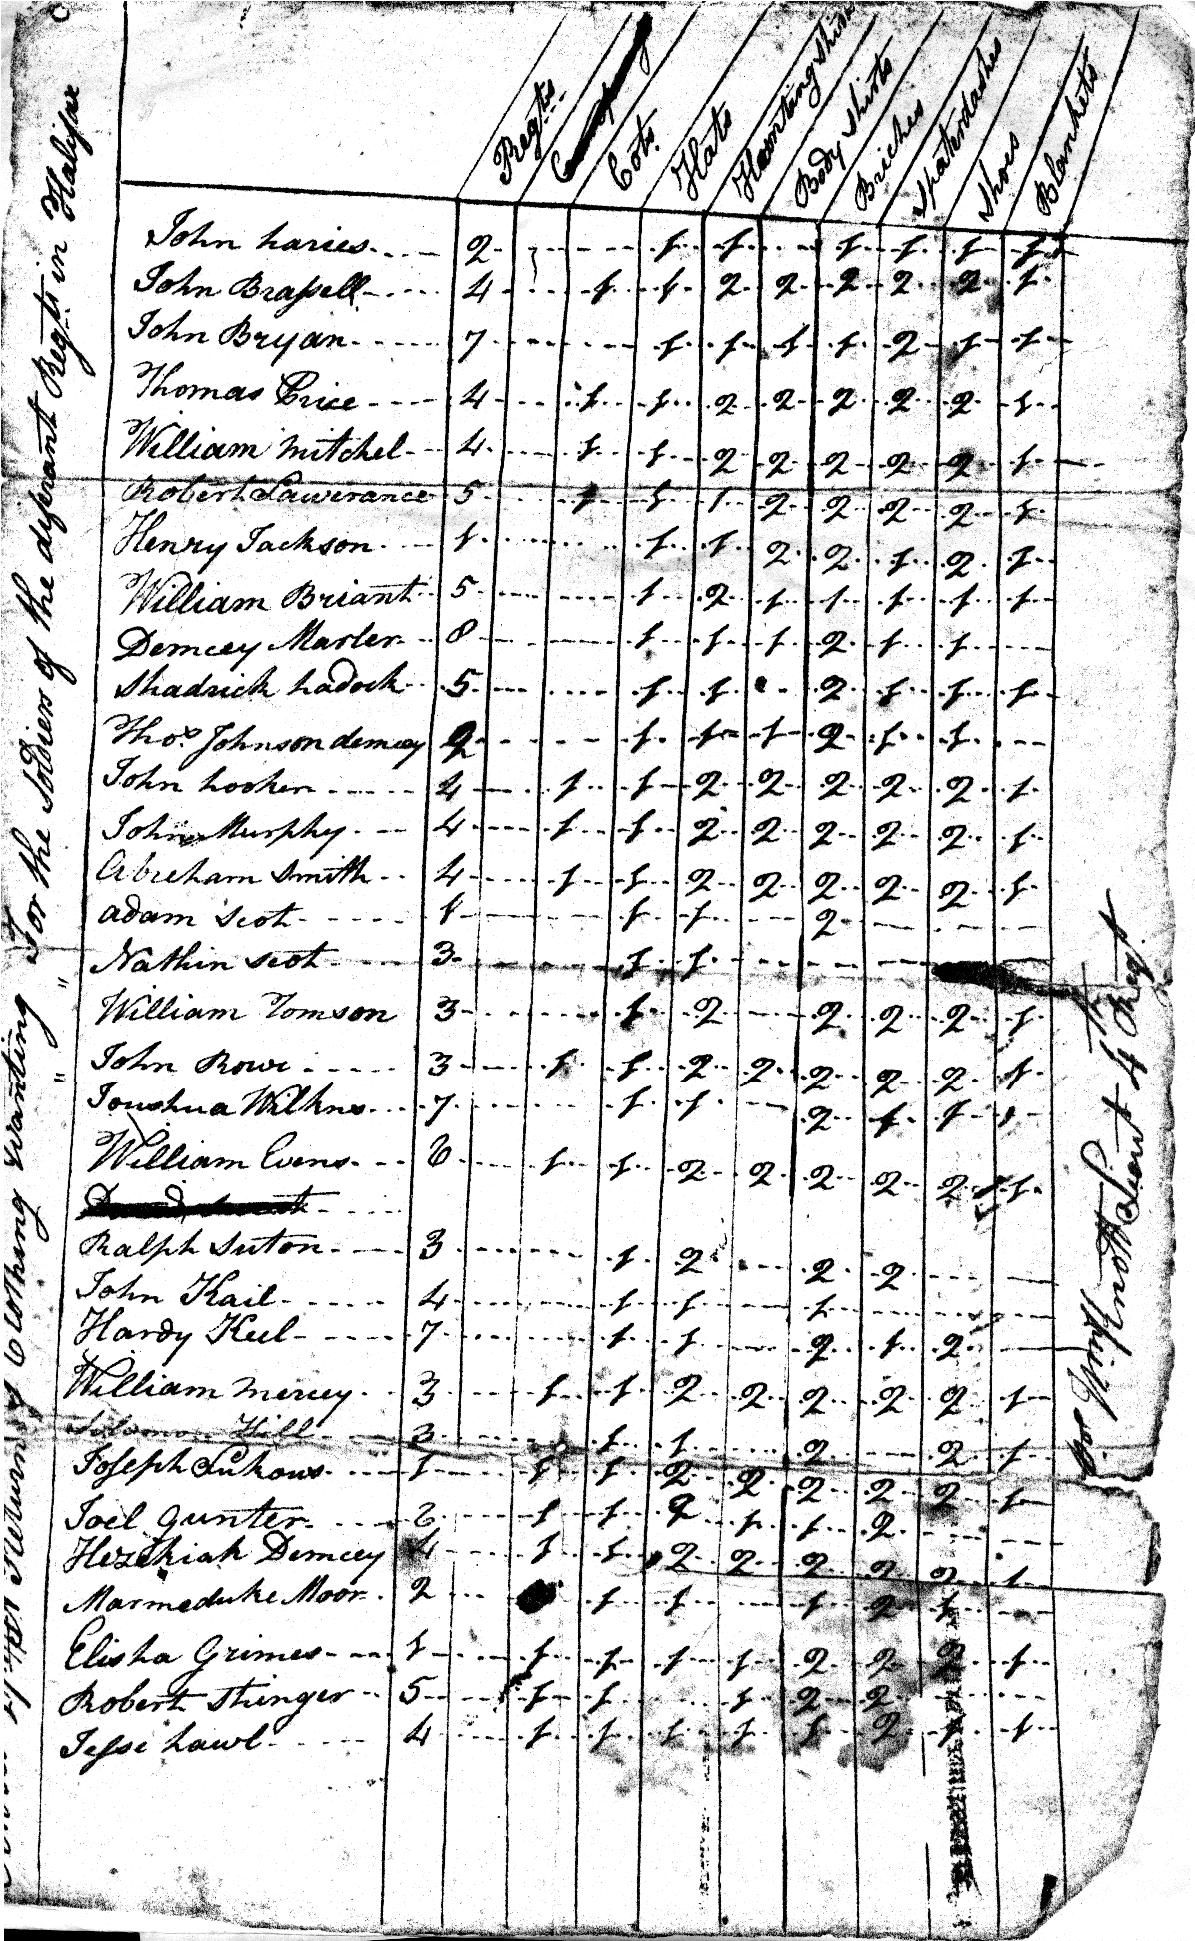 Returning of Clothing wanting For the Soldiers of the diferant Regts. in Halifax
" "
Regts. Cots. Hats Hounting Shirts Body Shirts Briches Spaterdashes Shoes Blankets
John haries 2 - - 1 1 - 1 1 1 1
John Brassell 4 - 1 1 2 2 2 2 2 1
John Bryan 7 - - 1 1 1 1 2 1 1
Thomas Price 4 - 1 1 2 2 2 2 2 1
William mitchel 4 - 1 1 2 2 2 2 2 1
Robert Lawerance 5 - 1 1 1 2 2 2 2 1
Henry Jackson 1 - - 1 1 2 2 1 2 1
William Briant 5 - - 1 2 1 1 1 1 1
Demcey Marler 8 - - 1 1 1 2 1 1 -
Shadrick hadock 5 - - 1 1 - 2 1 1 1
Thos. Johnson demcey 2 - - 1 1 1 2 1 1 -
John hooker 4 - 1 1 2 2 2 2 2 1
John Murphy 4 - 1 1 2 2 2 2 2 1
Abreham Smith 4 - 1 1 2 2 2 2 2 1
adam Scot 1 - - 1 1 - 2 - - -
Nathin Scot 3 - - 1 1 - - -
William Tomson 3 - - 1 2 - 2 2 2 1
John Rowe 3 - 1 1 2 2 2 2 2 1
Joushua Wilkns 7 - - 1 1 - 2 1 1 1
William Evens 6 - 1 1 2 2 2 2 2 1
Ralph Suton 3 - - 1 2 - 2 2 - -
John Kail 4 - - 1 1 - 1 - - -
Hardy Keel 7 - - 1 1 - 2 1 2 -
William mercey 3 - 1 1 2 2 2 2 2 1
Solomon Hill 3 - - 1 1 - 2 - 2 1
Joseph 1 - 1 1 2 2 2 2 2 1
Joel Gunter - 1 1 2 1 1 2 - -
Hezekiah Demcey 4 - 1 1 2 2 2 2 2 1
Marmeduke Moor 2 - 1 1 - 1 2 1 -
Elisha Grimes 1 - 1 1 1 1 2 2 2 1
Robert Stringer 5 - 1 1 - 1 2 2 - -
Jesse Lawl 4 - 1 1 1 1 1 2 1 1
Lieut 4th Regt.